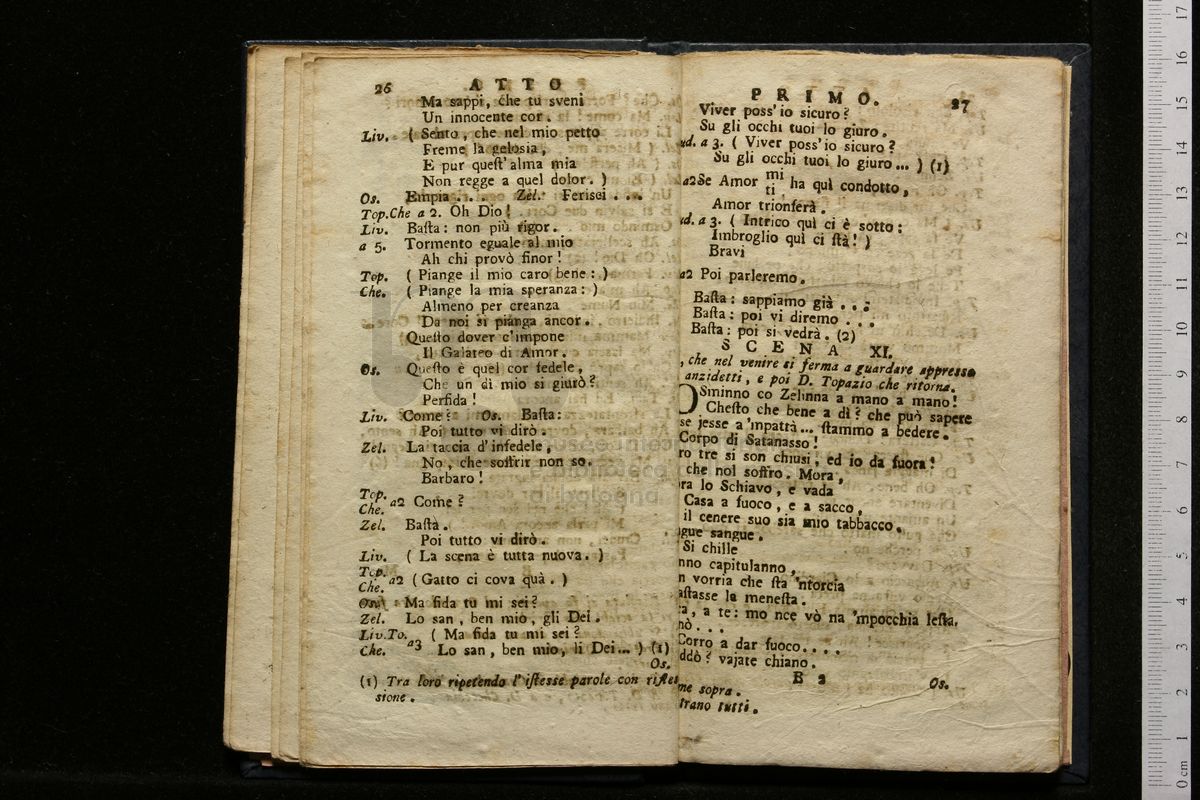 26 ATTO
Ma sappi, che tu sveni
Un innocente cor.
Liv. ( Sento, che nel mio petto
Freme la gelosia,
E pur quest' alma mia
Non regge a quel dolor. )
Os. Empia . . . Zel. Ferisci . . .
Top.Che a 2. Oh Dio!
Liv. Basta: non più rigor.
a 5. Tormento eguale al mio
Ah chi provò finor!
Top. ( Piange il mio caro bene: )
Che. ( Piange la mia speranza: )
Almeno per creanza
Da noi si pianga ancor.
Questo dover c'impone
Il Galateo di Amor.
Os. Questo è quel cor fedele,
Che un dì mio si giurò?
Perfida!
Liv. Come? Os. Basta:
Poi tutto vi dirò.
Zel. La taccia d'infedele,
No, che soffrir non so.
Barbaro!
Top.
Che. a2 Come?
Zel. Basta.
Poi tutto vi dirò.
Liv. ( La scena è tutta nuova. )
Top.
Che. a2 ( Gatto ci cova quà. )
Osm. Ma fida tu mi sei?
Zel. Lo san, ben mio, gli Dei.
Liv.To. ( Ma fida tu mi sei?
Che. a3 Lo san, ben mio, li Dei... ) (1)
Os.
(1) Tra loro ripetendo l'istesse parole con rifles
sione.
PRIMO. 27
Viver poss' io sicuro?
Su gli occhi tuoi lo giuro.
ud. a 3. ( Viver poss' io sicuro?
Su gli occhi tuoi lo giuro... ) (1)
a2 Se Amor mi
ti ha quì condotto,
Amor trionferà.
ud. a 3. ( Intrico quì ci è sotto:
Imbroglio quì ci stà! )
Bravi
a2 Poi parleremo.
Basta: sappiamo già . . .
Basta: poi vi diremo . . .
Basta: poi si vedrà. (2)
SCENA XI.
, che nel venire si ferma a guardare appresso
anzidetti, e poi D. Topazio che ritorna.
OSminno co Zelinna a mano a mano!
Chesto che bene a dì? che può sapere
se jesse a 'mpatrà... stammo a bedere.
Corpo di Satanasso!
ro tre si son chiusi, ed io da fuora!
che nol soffro. Mora,
ra lo Schiavo, e vada
Casa a fuoco, e a sacco,
il cenere suo sia mio tabbacco.
gue sangue.
Si chille
nno capitulanno,
n vorria che sta 'ntorcia
astasse la menesta.
a, a te: mo nce vò na 'mpocchia lesta.
nò . . .
Corro a dar fuoco. . . .
ddò? vajate chiano.
B 2 Os.
me sopra.
trano tutti.